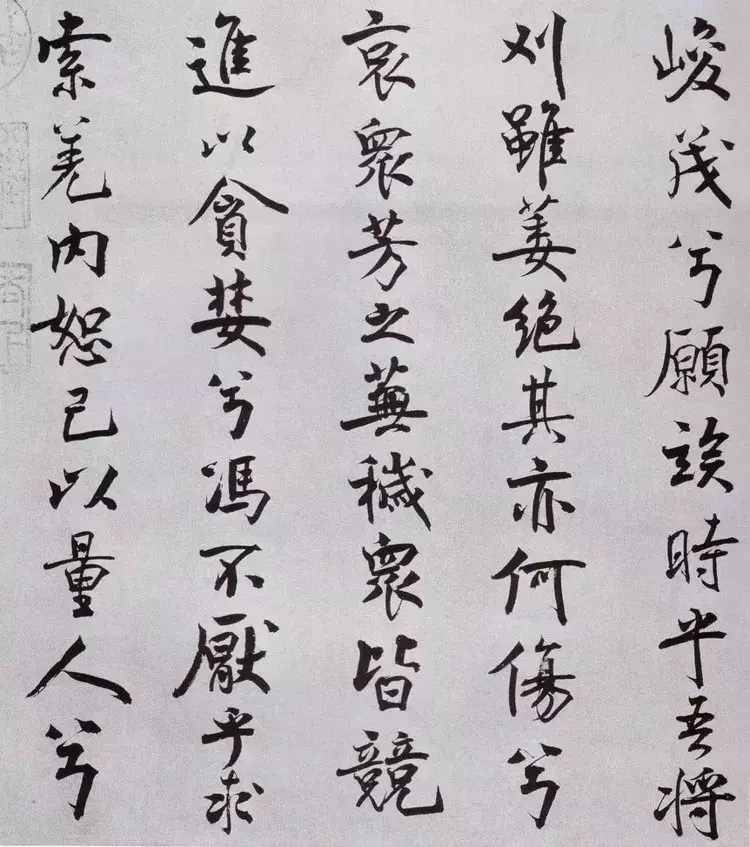 峻茂兮願竢時乎吾將
刈雖萎絕其亦何傷兮
哀衆芳之蕪穢衆皆競
進以貪婪兮馮不厭乎求
索羌内恕己以量人兮